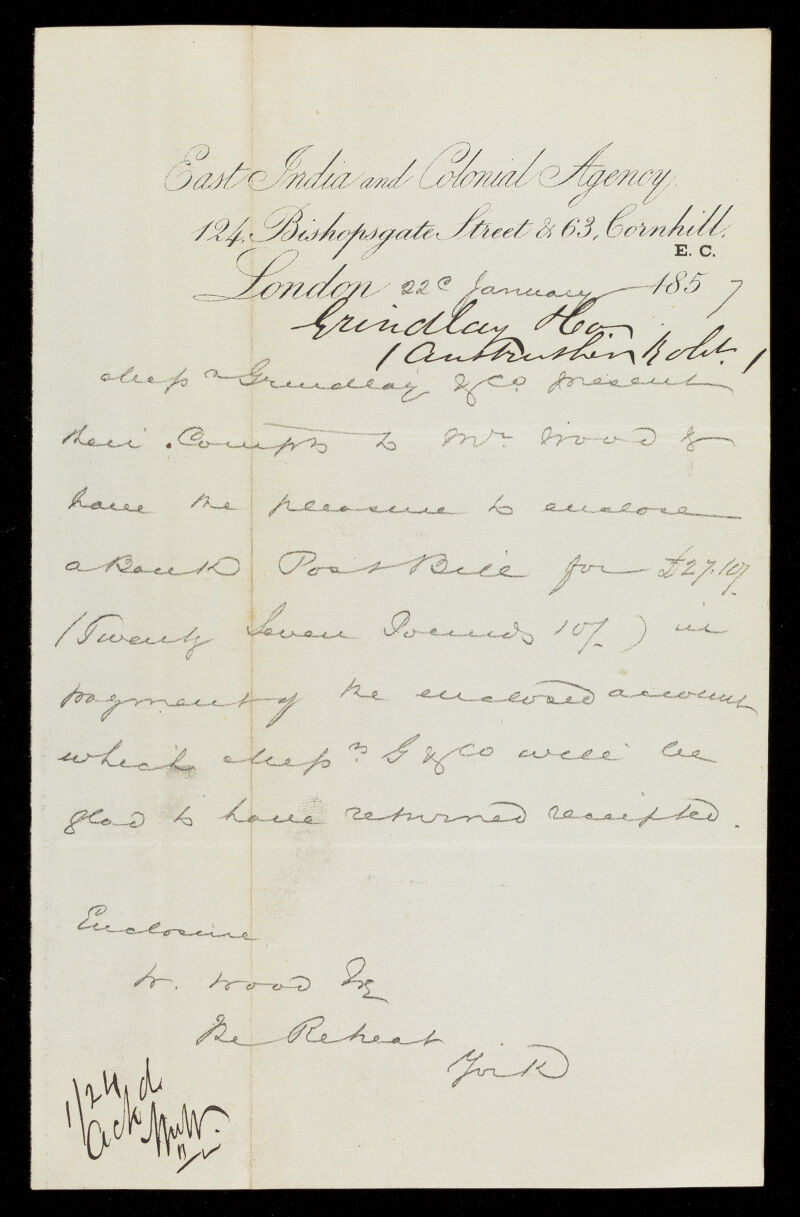 East India and Colonial Agency.
124, Bishopsgate Street & 63, Cornhill.
E. C.
London 22d January 1857
Grindlay & Co
(Anstruther Robt.)
Messrs Grindlay & Co. present
their Compts to Mr. Wood &
have the pleasure to enclose
a Bank Post Bill for £27.10/-
(Twenty Seven Pounds 10/-) in
payment of the enclosed account
which Messrs G & Co will be
glad to have returned receipted.
Enclosure
W. Wood Esq
The Retreat
York
1/24
Ackd.